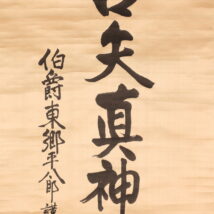 矢真神
伯爵東郷平八郎